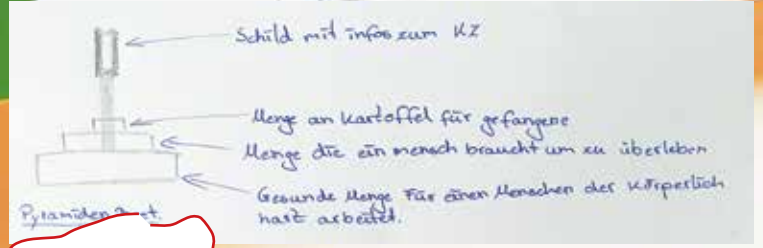 Schild mit infos zum KZ
Menge an Kartoffel für gefangene
Menge die ein mensch braucht um zu überleben
Gesunde Menge Für einen Menschen der körperlich
hart arbeitet.
Pyramiden